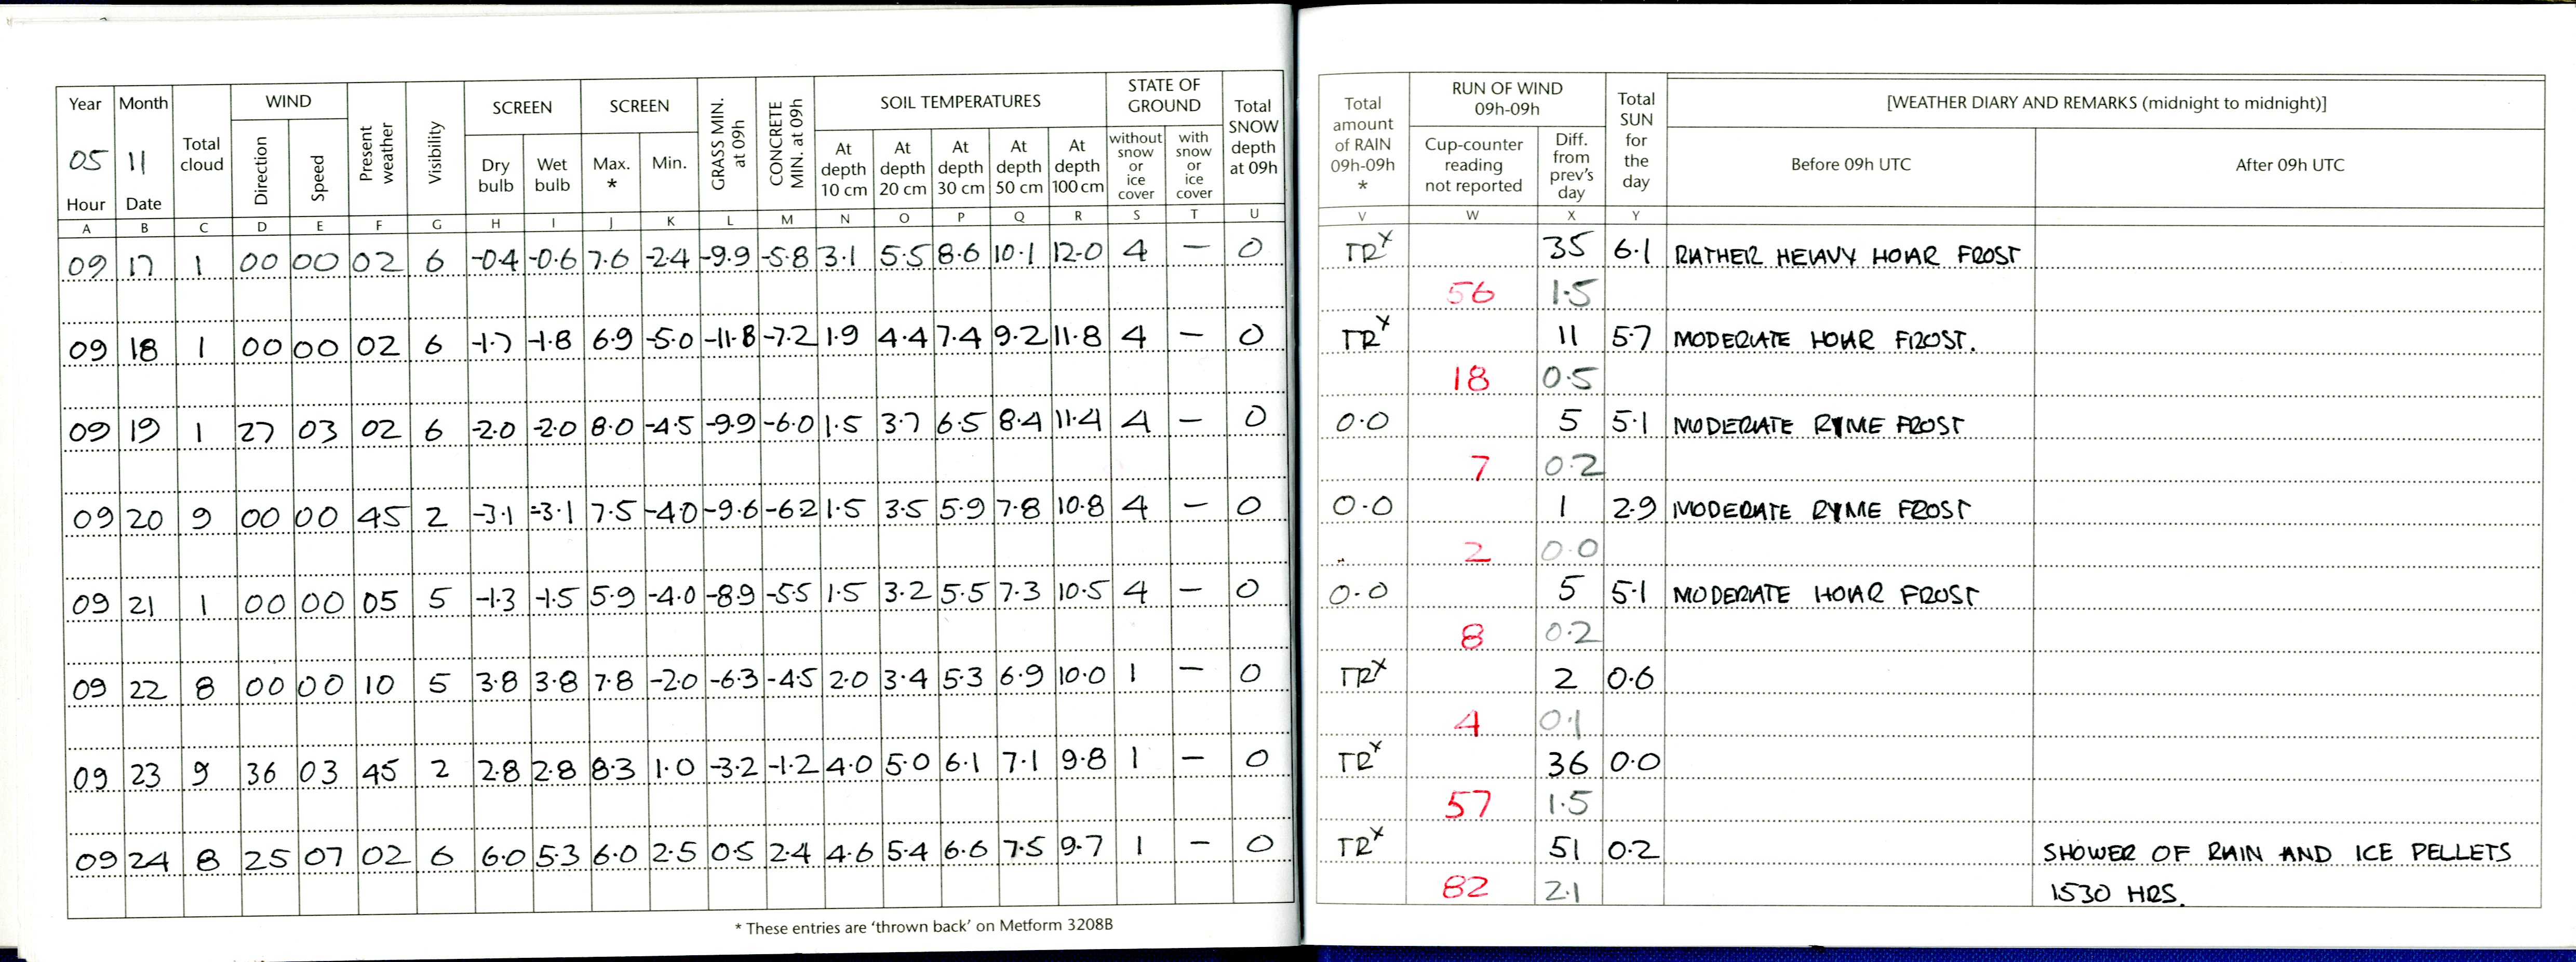 Year Month Total cloud WIND Present weather Visibility SCREEN SCREEN GRASS MIN. at 09h CONCRETE MIN. at 09h SOIL TEMPERATURES STATE OF GROUND Total SNOW depth at 09h Total amount of RAIN 09h-09h * RUN OF WIND 09h-09h Total SUN for the day [WEATHER DIARY AND REMARKS (midnight to midnight)]
05 11 Direction Speed Dry bulb Wet bulb Max. * Min. At depth 10 cm At depth 20 cm At depth 30 cm At depth 50 cm At depth 100 cm without snow or ice cover with snow or ice cover Cup-counter reading not reported Diff. from prev's day Before 09h UTC After 09h UTC
Hour Date
A B C D E F G H I J K L M N O P Q R S T U V W X Y
09 17 1 00 00 02 6 -0.4 -0.6 7.6 -2.4 -9.9 -5.8 3.1 5.5 8.6 10.1 12.0 4 — 0 TRx 35 6.1 RATHER HEAVY HOAR FROST
56 1.5
09 18 1 00 00 02 6 -1.7 -1.8 6.9 -5.0 -11.8 -7.2 1.9 4.4 7.4 9.2 11.8 4 — 0 TRx 11 5.7 MODERATE HOAR FROST.
18 0.5
09 19 1 27 03 02 6 -2.0 -2.0 8.0 -4.5 -9.9 -6.0 1.5 3.7 6.5 8.4 11.4 4 — 0 0.0 5 5.1 MODERATE RYME FROST
7 0.2
09 20 9 00 00 45 2 -3.1 -3.1 7.5 -4.0 -9.6 -6.2 1.5 3.5 5.9 7.8 10.8 4 — 0 0.0 1 2.9 MODERATE RYME FROST
2 0.0
09 21 1 00 00 05 5 -1.3 -1.5 5.9 -4.0 -8.9 -5.5 1.5 3.2 5.5 7.3 10.5 4 — 0 0.0 5 5.1 MODERATE HOAR FROST
8 0.2
09 22 8 00 00 10 5 3.8 3.8 7.8 -2.0 -6.3 -4.5 2.0 3.4 5.3 6.9 10.0 1 — 0 TRx 2 0.6
4 0.1
09 23 9 36 03 45 2 2.8 2.8 8.3 1.0 -3.2 -1.2 4.0 5.0 6.1 7.1 9.8 1 — 0 TRx 36 0.0
57 1.5
09 24 8 25 07 02 6 6.0 5.3 6.0 2.5 0.5 2.4 4.6 5.4 6.6 7.5 9.7 1 — 0 TRx 51 0.2 SHOWER OF RAIN AND ICE PELLETS
82 2.1 1530 HRS.
* These entries are ‘thrown back’ on Metform 3208B